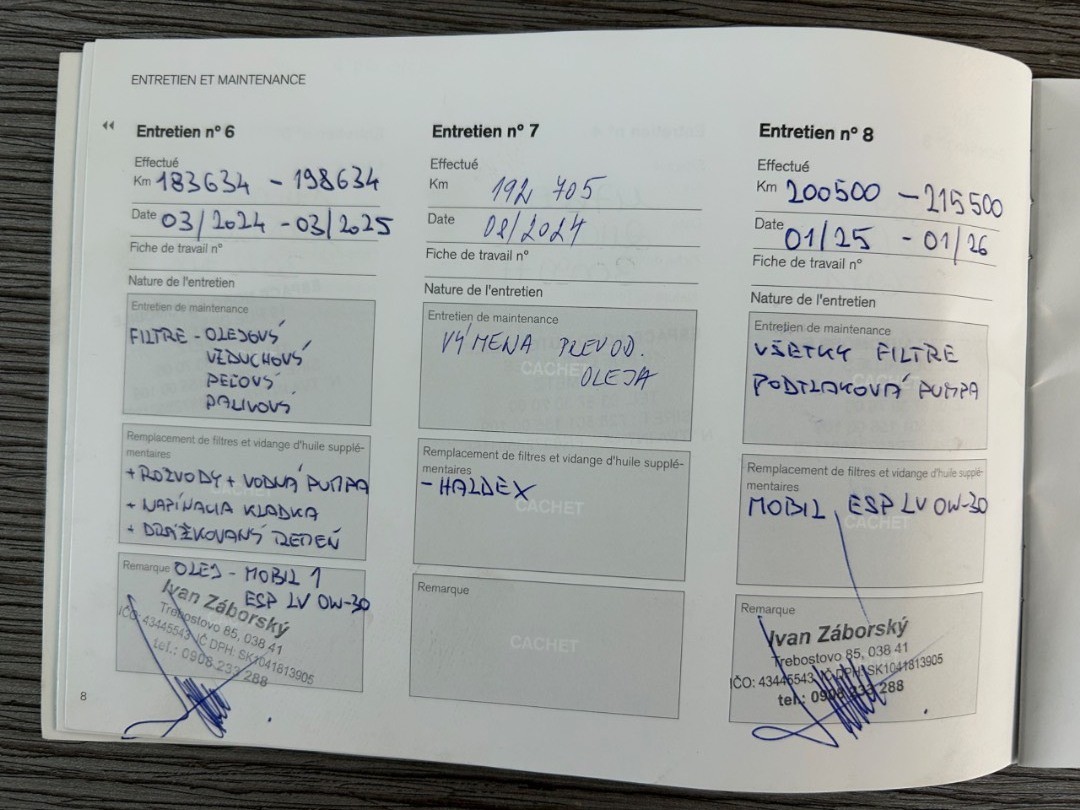 ENTRETIEN ET MAINTENANCE
Entretien nº 6
Effectué
Km 183634 - 198634
Date 03/2024 - 03/2025
Fiche de travail nº
Nature de l'entretien
Entretien de maintenance
FILTRE - OLEJOVÝ
VZDUCHOVÝ
PEĽOVÝ
PALIVOVÝ
Remplacement de filtres et vidange d'huile supplé-
mentaires
+ ROZVODY + VODNÁ PUMPA
+ NAPÍNACIA KLADKA
+ DRÁŽKOVANÝ REMEŇ
Remarque OLEJ - MOBIL 1
ESP LV 0W-30
Ivan Záborský
Trebostovo 85, 038 41
IČO: 43445543, IČ DPH: SK1041813905
tel.: 0908 233 288
8
Entretien nº 7
Effectué
Km 192 705
Date 08/2024
Fiche de travail nº
Nature de l'entretien
Entretien de maintenance
VÝMENA PREVOD.
OLEJA
CACHET
Remplacement de filtres et vidange d'huile supplé-
mentaires
- HALDEX
CACHET
Remarque
CACHET
Entretien nº 8
Effectué
Km 200500 - 215500
Date 01/25 - 01/26
Fiche de travail nº
Nature de l'entretien
Entretien de maintenance
VŠETKY FILTRE
PODTLAKOVÁ PUMPA
Remplacement de filtres et vidange d'huile supplé-
mentaires
MOBIL ESP LV 0W-30
CACHET
Remarque
Ivan Záborský
Trebostovo 85, 038 41
IČO: 43445543, IČ DPH: SK1041813905
tel.: 0908 233 288